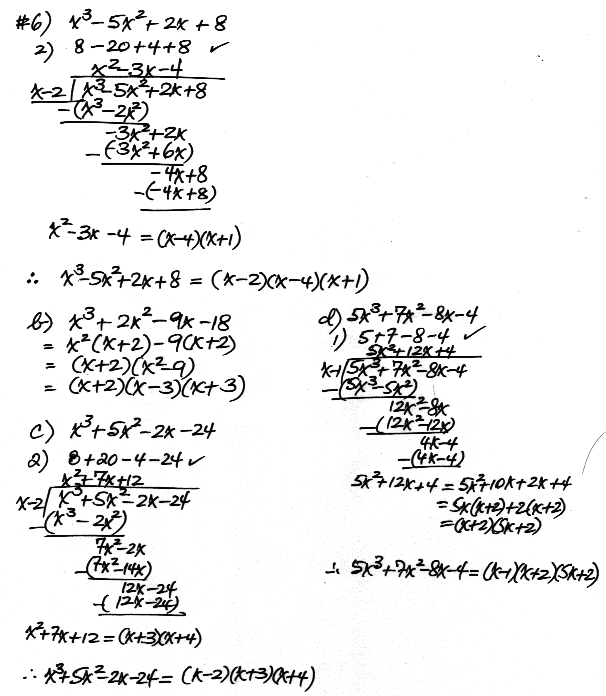 #6) x³-5x²+2x+8
2) 8-20+4+8 ✓
x²-3x-4
x-2 | x³-5x²+2x+8
-(x³-2x²)
-3x²+2x
-(-3x²+6x)
-4x+8
-(-4x+8)
x²-3x-4 = (x-4)(x+1)
∴ x³-5x²+2x+8 = (x-2)(x-4)(x+1)
b) x³+2x²-9x-18
= x²(x+2)-9(x+2)
= (x+2)(x²-9)
= (x+2)(x-3)(x+3)
c) x³+5x²-2x-24
2) 8+20-4-24 ✓
x²+7x+12
x-2 | x³+5x²-2x-24
-(x³-2x²)
7x²-2x
-(7x²-14x)
12x-24
-(12x-24)
x²+7x+12 = (x+3)(x+4)
∴ x³+5x²-2x-24 = (x-2)(x+3)(x+4)
d) 5x³+7x²-8x-4
1) 5+7-8-4 ✓
5x²+12x+4
x-1 | 5x³+7x²-8x-4
-(5x³-5x²)
12x²-8x
-(12x²-12x)
4x-4
-(4x-4)
5x²+12x+4 = 5x²+10x+2x+4
= 5x(x+2)+2(x+2)
= (x+2)(5x+2)
∴ 5x³+7x²-8x-4 = (x-1)(x+2)(5x+2)